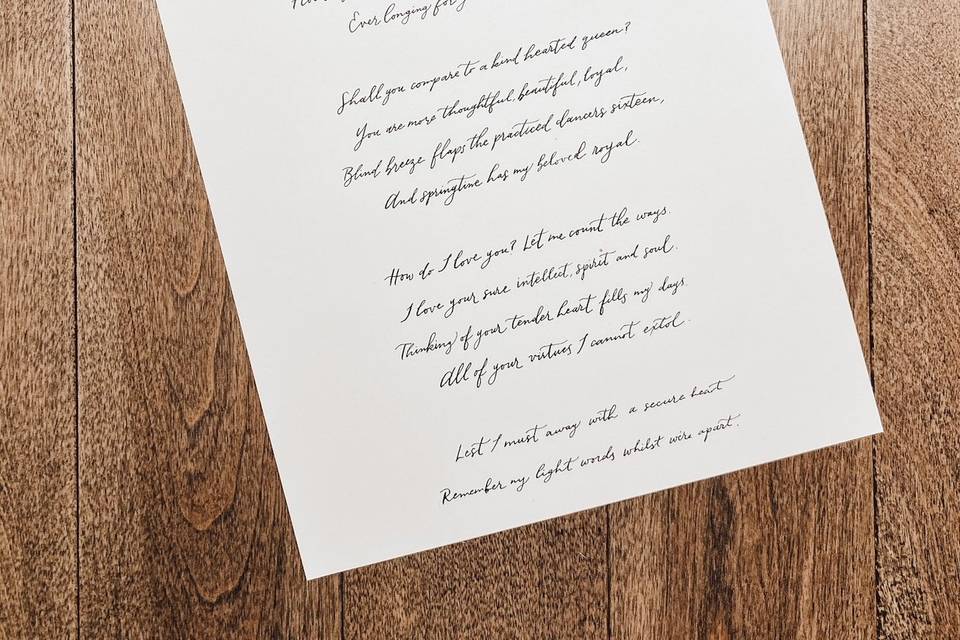 Ever longing for
Shall you compare to a kind hearted queen?
You are more thoughtful, beautiful, loyal,
Blind breeze flaps the practiced dancers sixteen,
And springtine has my beloved royal.
How do I love you? Let me count the ways.
I love your sure intellect, spirit and soul.
Thinking of your tender heart fills my days.
All of your virtues I cannot extol.
Lest I must away with a secure heat
Remember my light words whilst we're apart.